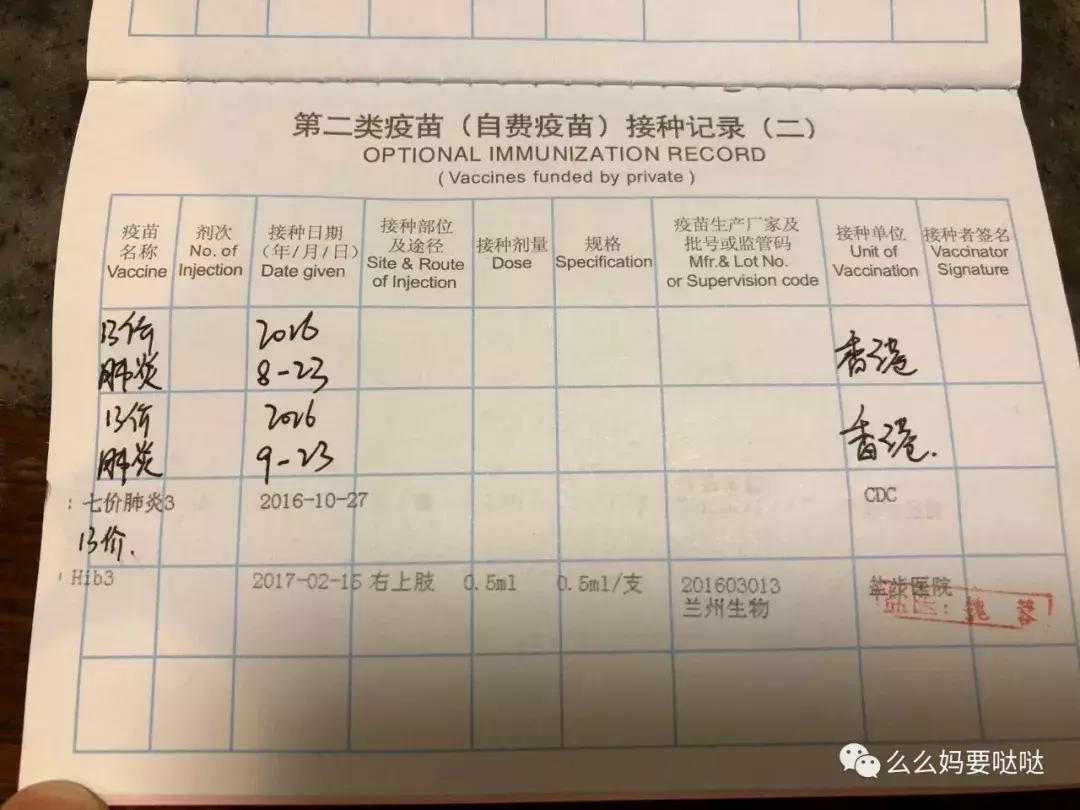 第二类疫苗（自费疫苗）接种记录（二）
OPTIONAL IMMUNIZATION RECORD
( Vaccines funded by private )
疫苗
名称
Vaccine
剂次
No. of
Injection
接种日期
（年/月/日）
Date given
接种部位
及途径
Site & Route
of Injection
接种剂量
Dose
规格
Specification
疫苗生产厂家及
批号或监管码
Mfr.& Lot No.
or Supervision code
接种单位
Unit of
Vaccination
接种者签名
Vaccinator
Signature
13价
肺炎
2016
8-23
香港
13价
肺炎
2016
9-23
香港.
七价肺炎3
2016-10-27
CDC
13价.
Hib3
2017-02-15
右上肢
0.5ml
0.5ml/支
201603013
兰州生物
医院
么么妈要哒哒